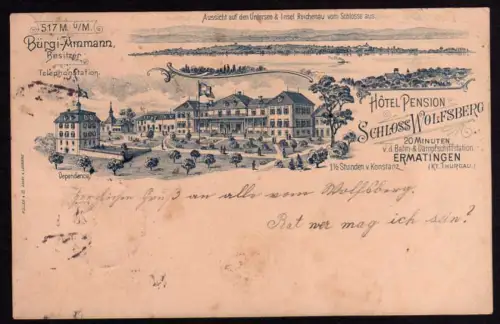 Aussicht auf den Untersee & Insel Reichenau vom Schlosse aus.
517 M. ü/M.
Bürgi-Ammann,
Besitzer
Telephon Station
HÔTEL PENSION
SCHLOSS WOLFSBERG
20 MINUTEN
v. d. Bahn- & Dampfschiffstation
ERMATINGEN
1½ Stunden v. Konstanz (KT. THURGAU.)
Dependence
Herzlichen Gruß an alle vom Wolfsberg.
Rat wer mag ich sein?